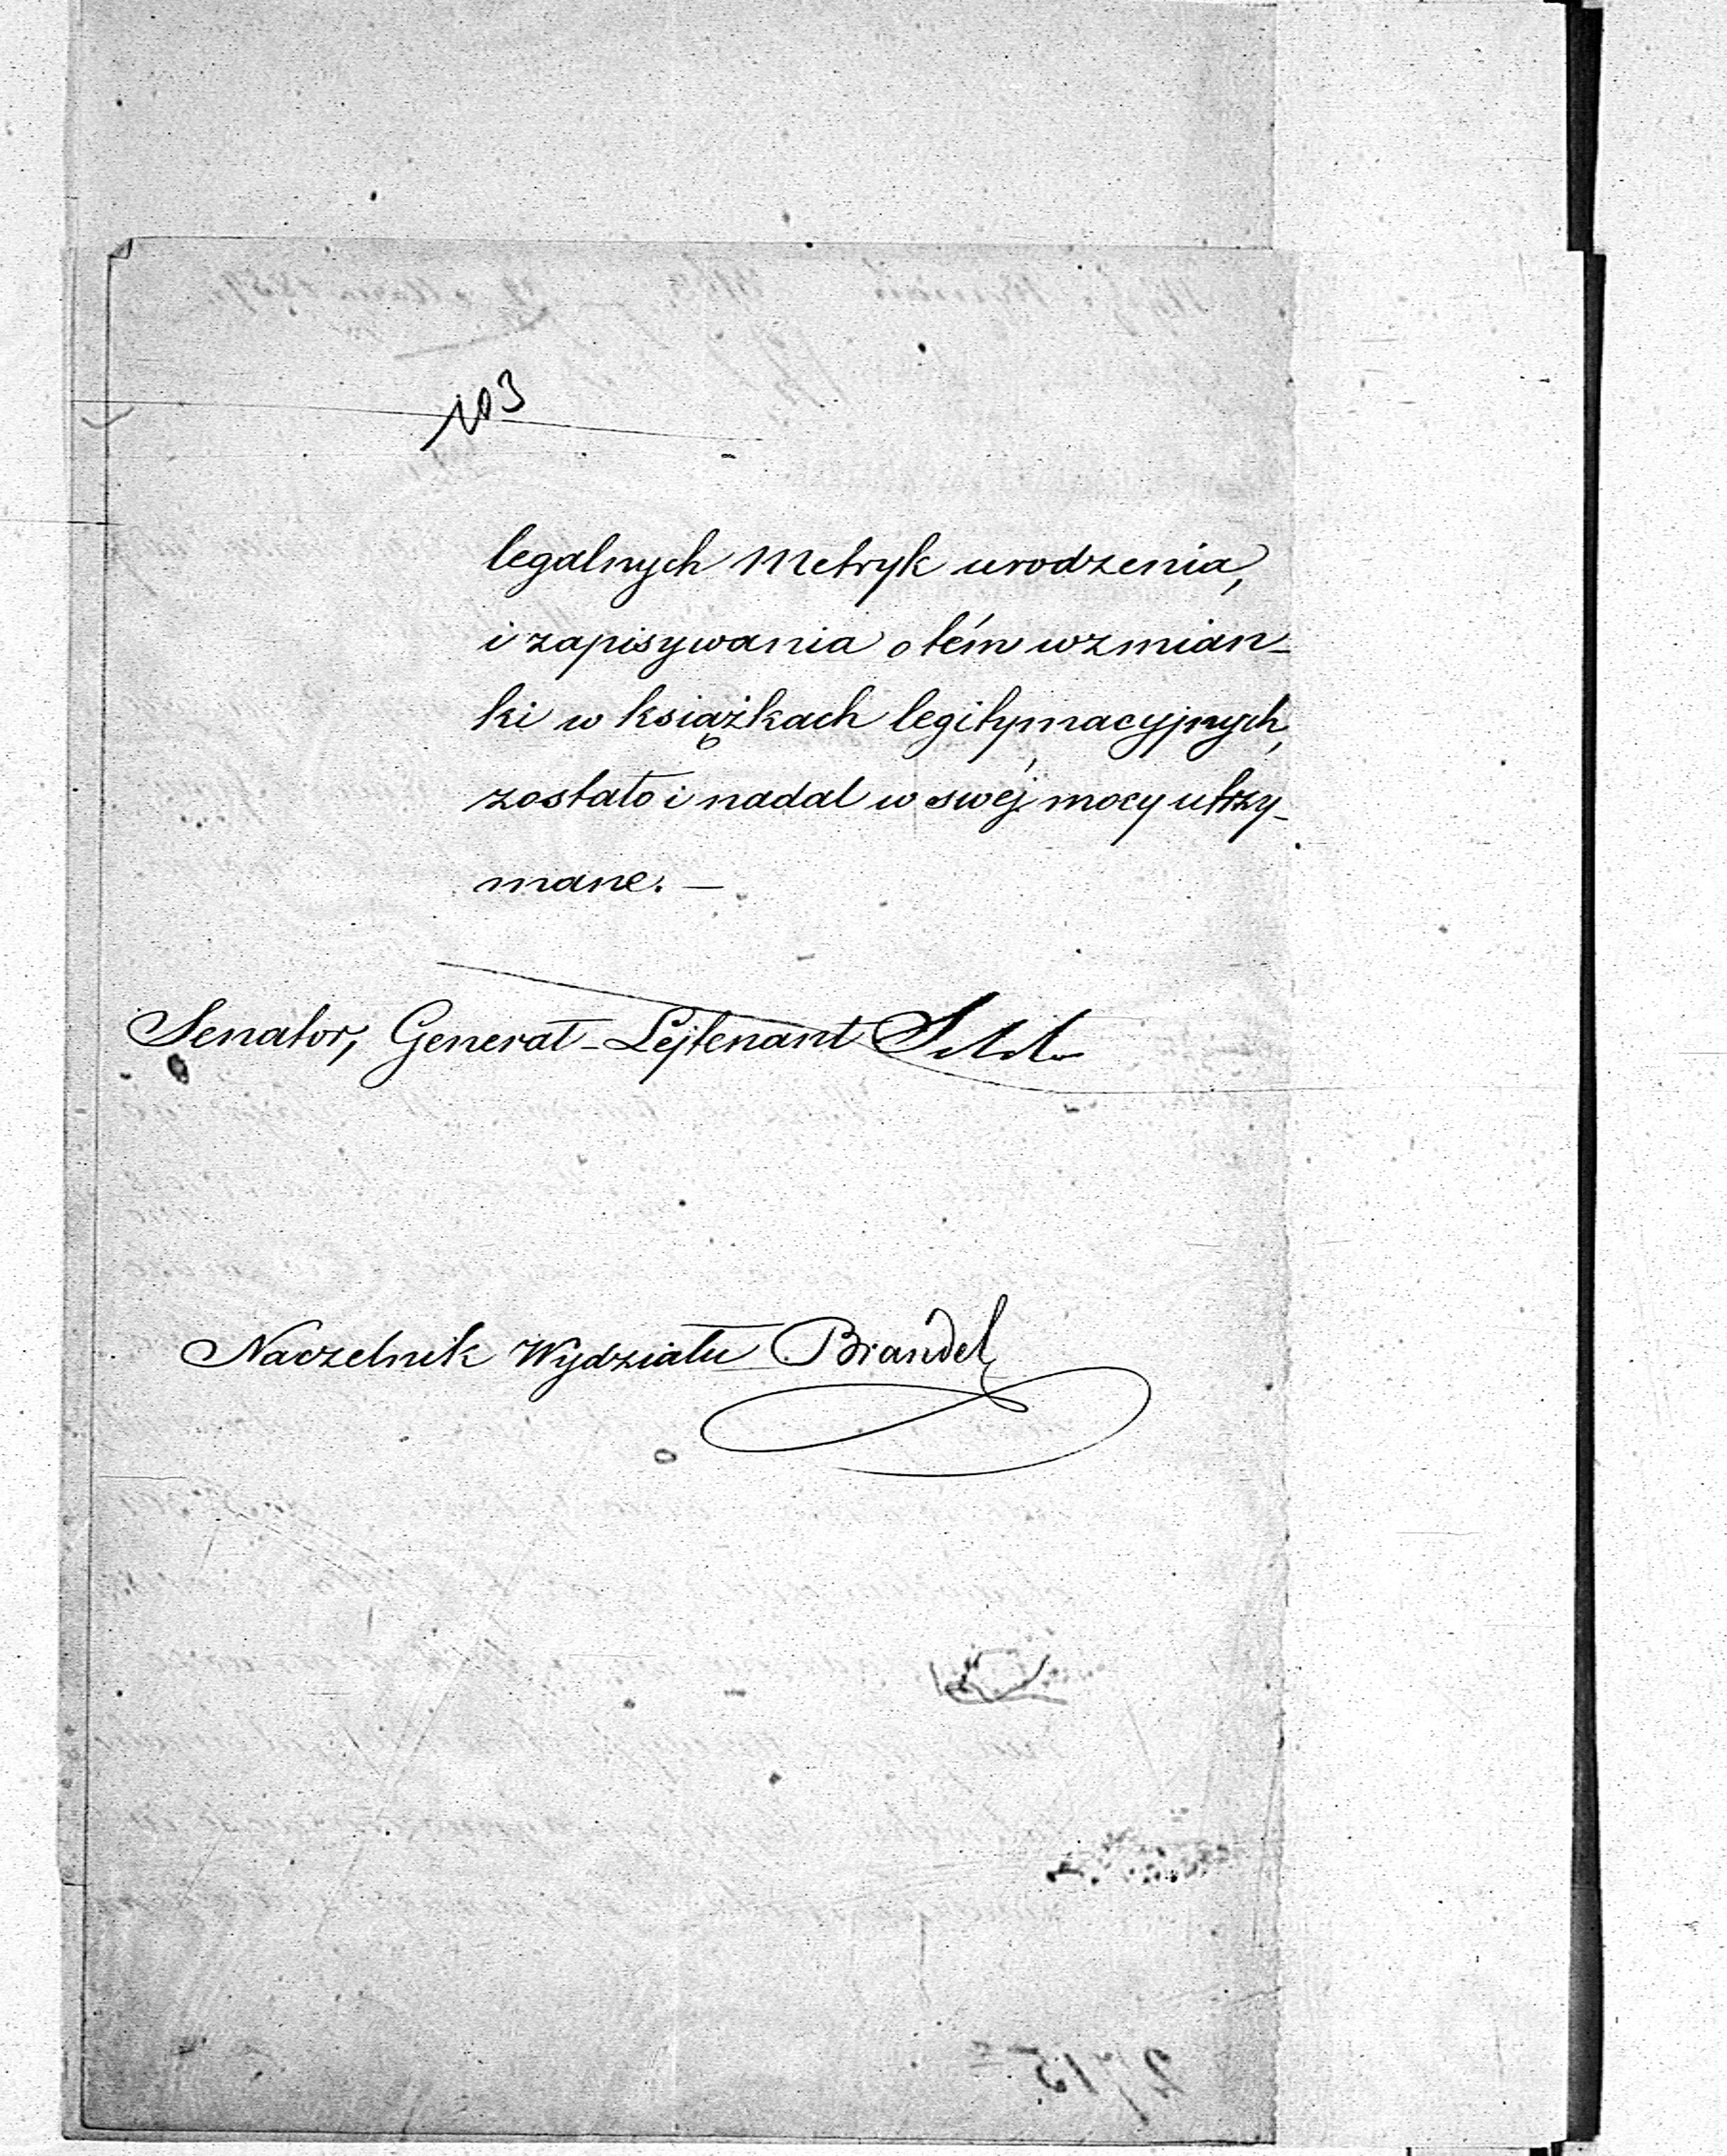 103
legalnych Metryk urodzenia,
i zapisywania o tém wzmian-
ki w książkach legitymacyjnych,
zostało i nadal w swéj mocy utrzy-
mane. —
Senator, Generał-Lejtenant
Naczelnik Wydziału Brandel